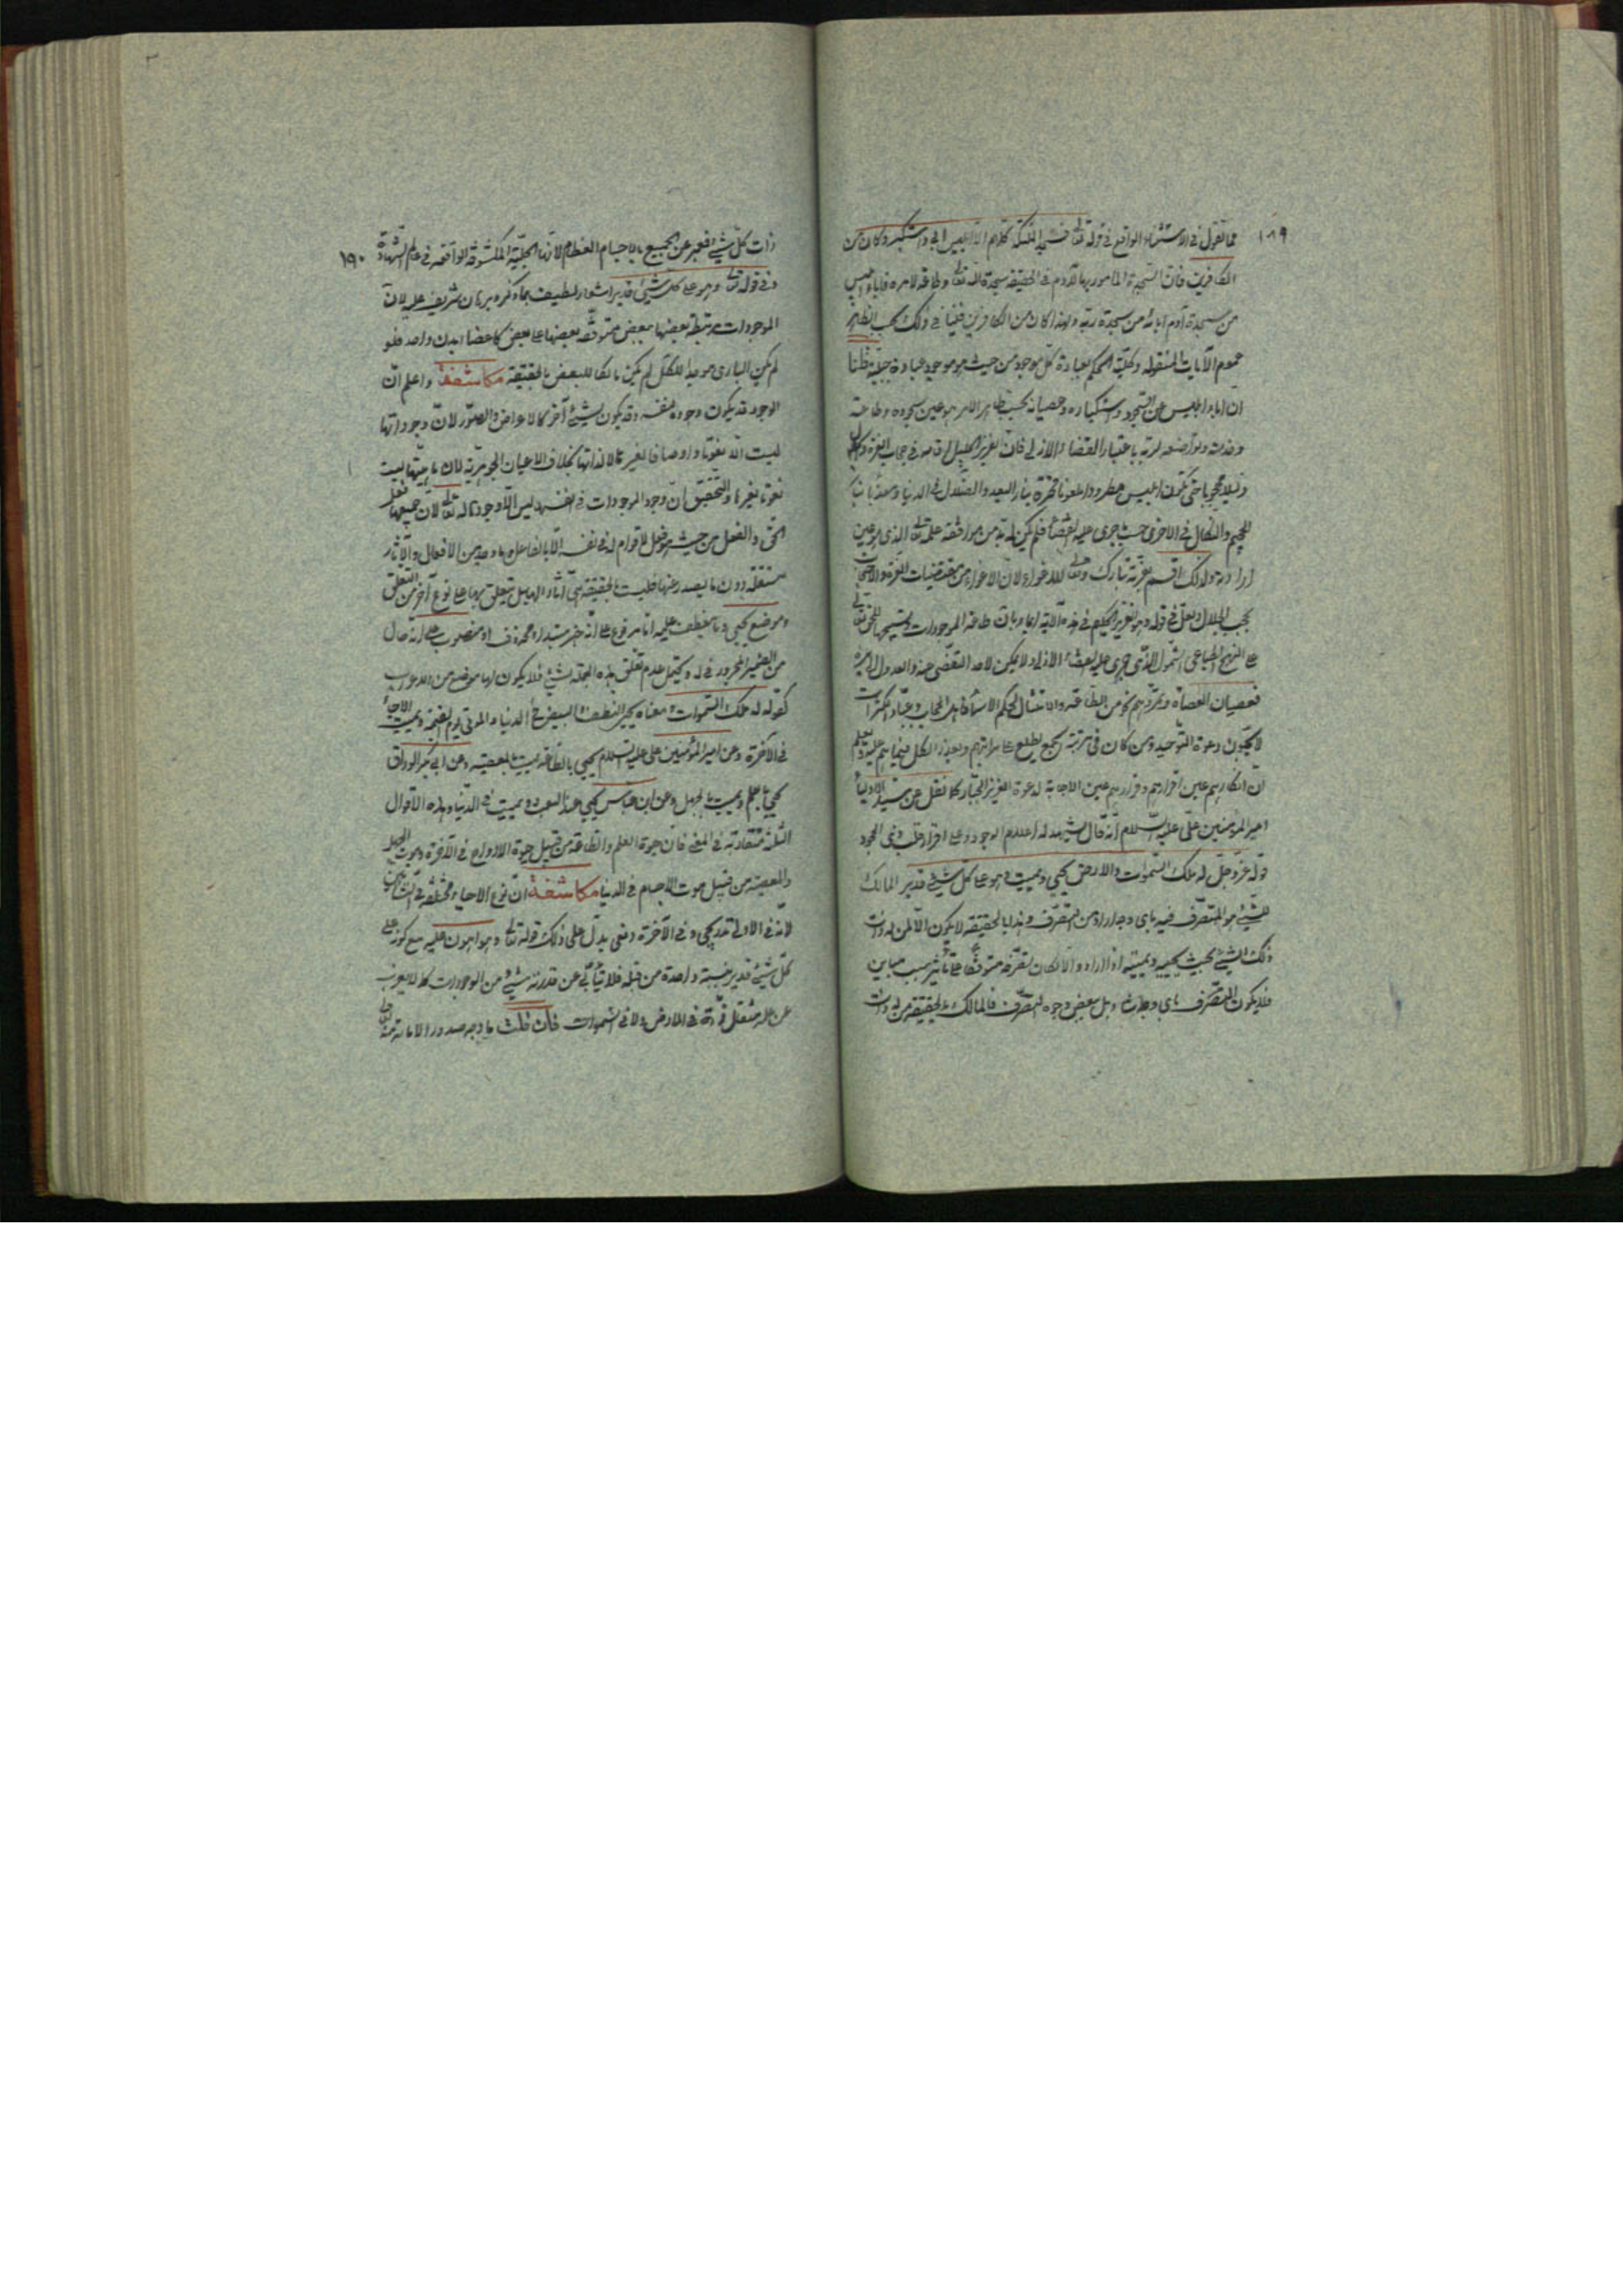 ١٨٩
فما تقول فى الاستثناء الواقع فى قوله تعالى فسجد الملئكة كلهم الا ابليس ابى واستكبر وكان من
الكافرين فان السجدة المامور بها لآدم فى الحقيقة سجدة لله تعالى وطاعة لامره فاباء ابليس
من سجدة آدم اباؤه من سجدة ربه ولهذا كان من الكافرين فينافى ذلك بحسب الظاهر
عموم الآيات المنقولة وكلية الحكم بعبادة كل موجود من حيث هو موجود عبادة جبلية قلنا
ان اباء ابليس عن السجود واستكباره وعصيانه بحسب ظاهر الامر هو عين سجوده وطاعته
وخدمته وتواضعه لربه باعتبار القضاء الازلى فان العزيز الجليل اقامه فى حجاب العزة
حتى يكون ابليس مطرودا ملعونا بنار البعد والضلال فى الدنيا ومعذبا بنار
الجحيم والنكال فى الاخرى حيث جرى عليه القضاء فلم يكن له بد من موافقة علمه تعالى الذى هو عين
ارادته ولذلك اقسم بعزته تبارك وتعالى للاغواء لان الاغواء من مقتضيات العزة والاحتجاب
بحجب الجلال ولعل فى قوله وهو العزيز الحكيم فى هذه الآية ايماء بان طاعة الموجودات وتسبيحها للحق تعالى
على النهج الشمول الذى جرى عليه القضاء الازلى ولا يمكن لاحد التفصى عنه والعدول
فعصيان العصاة وتمردهم نحو من الطاعة والامتثال لحكم الا ان اهل الحجاب وعباد الكثرات
لا يجيبون دعوة التوحيد ومن كان فى مرتبة الجمع يطلع على مراتبهم ويعذر الكل فيما هم عليه ويعلم
ان انكارهم عين اقرارهم وفرارهم عين الاجابة لدعوة العزيز الجبار كما نقل عن سيد الاولياء
امير المؤمنين على عليه السلام انه قال تشهد له اعلام الوجود على اقرار قلب ذى الجحود
قوله عز وجل له ملك السموات والارض يحيى ويميت وهو على كل شئ قدير المالك
للشئ هو المتصرف فيه باى وجه اراد من التصرف وهذا بالحقيقة لا يكون الا لمن له ذات
ذلك الشئ بحيث يحييه ويميته اذا اراد والا لكان تصرفه متوقفا على تأثير سبب مباين
فلا يكون التصرف باى وجه شاء وبل بعض وجوه التصرف فالمالك بالحقيقة من له ذات
١٩٠
ذات كل شئ فعبر عن الجميع بالاجسام العظام لانها الجلية المكشوفة الواقعة فى عالم الشهادة
وفى قوله تعالى وهو على كل شئ قدير اشعار لطيف بما ذكره برهان شريف عليه لان
الموجودات مرتبطة بعضها ببعض متوقفة بعضها على بعض كاعضاء بدن واحد فلو
لم يكن البارى موجدا للكل لم يكن مالكا للبعض بالحقيقة مكاشفة واعلم ان
الوجود قد يكون وجوده لنفسه وقد يكون لشئ آخر كالاعراض والصور لان وجوداتها
ليست الا نعوتا واوصافا لغيرها لا لذاتها بخلاف الاعيان الجوهرية لان ماهيتها ليست
نعوتا لغيرها والتحقيق ان وجود الموجودات فى انفسها ليس الا وجودها له تعالى لان جميعها فعل
الحق والفعل من حيث هو فعل لا قوام له فى نفسه الا بالفاعل وما وجد من الافعال والآثار
مستقلة دون ما يصدر عنها فليست بالحقيقة هى آثارا لها بل يتعلق بها على نوع آخر من التعلق
وموضع يحيى وما عطف عليه اما مرفوع على انه خبر مبتداء محذوف او منصوب على انه حال
من الضمير المجرور فى له ويحتمل عدم تعلق هذه الجملة بشئ فلا يكون لها موضع من الاعراب
كقوله له ملك السموات ومعناه يحيى النطف والبيض فى الدنيا والموتى يوم القيمة ويميت الاحياء
فى الآخرة وعن امير المؤمنين على عليه السلام يحيى بالطاعة يميت بالمعصية وعن ابى بكر الوراق
يحيى بالعلم ويميت بالجهل وعن ابن عباس يحيى عند البعث ويميت فى الدنيا وهذه الاقوال
الثلثة متقاربة فى المعنى فان حيوة العلم والطاعة من قبيل حيوة الارواح فى الآخرة وموت الجهل
والمعصية من قبيل موت الاجسام فى الدنيا مكاشفة ان نوع الاحياء مختلفة فى النشأتين
لانه فى الاولى تدريجى وفى الآخرة دفعى يدل على ذلك قوله تعالى وهو اهون عليه مع كونه على
كل شئ قدير بنسبة واحدة من قبله فلا يتأبى عن قدرته شئ من الموجودات كما لا يعزب
عن علمه مثقال ذرة فى الارض ولا فى السموات فان قلت ما وجه صدور الاماتة منه